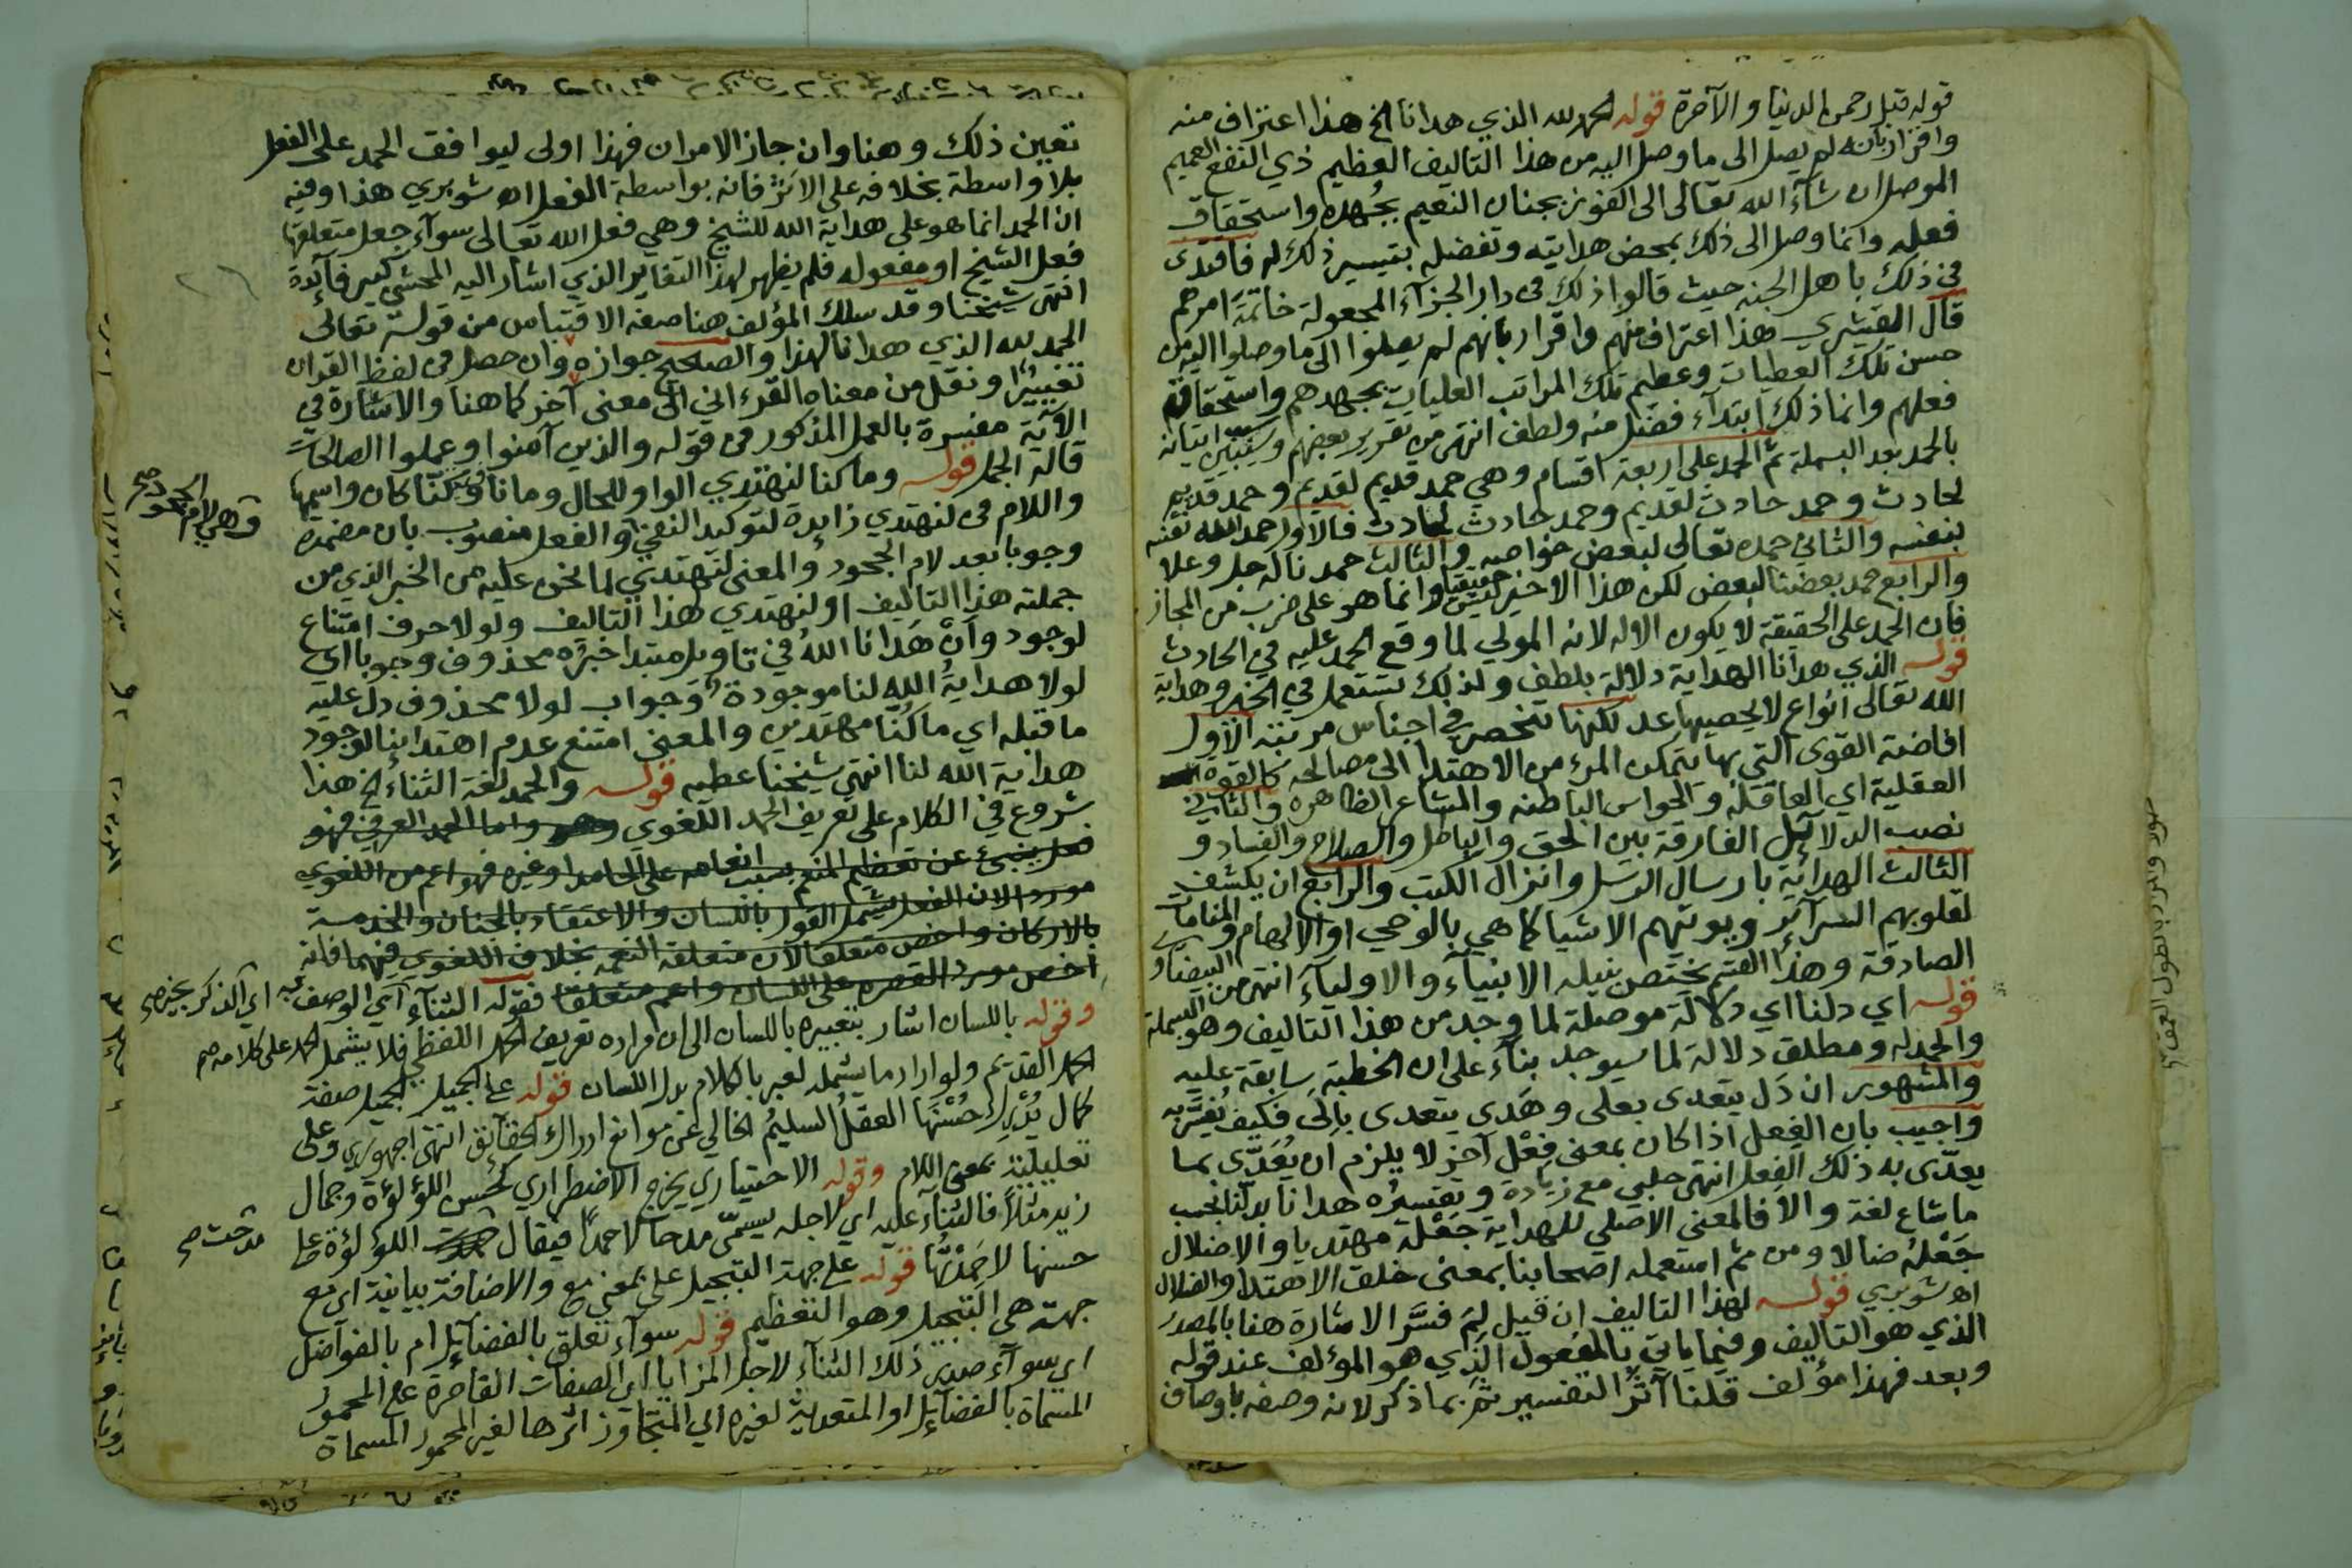 قوله قيل رحمن الدنيا والآخرة قوله الحمد لله الذي هدانا الخ هذا اعتراف منه
واقرار بانه لم يصل الى ما وصل اليه من هذا التاليف العظيم ذي النفع العميم
الموصل ان شآء الله تعالى الى الفوز بجنان النعيم بجُهده واستحقاق
فعله وانما وصل الى ذلك بمحض هدايته وتفضله بتيسير ذلك له فاقتدى
في ذلك باهل الجنه حيث قالوا ذلك في دار الجزآء المجعولة خاتمة امرهم
قال القشيري هذا اعتراف منهم واقرار بانهم لم يصلوا الى ما وصلوا اليه من
حسن تلك العطيات وعظيم تلك المراتب العليات بجهدهم واستحقاق
فعلهم وانما ذلك ابتدآء فضل منه ولطف انتهى من تقرير بعضهم وسبب اتيانه
بالحمد بعد البسملة ثم الحمد على اربعة اقسام وهي حمد قديم لقديم وحمد قديم
لحادث وحمد حادث لقديم وحمد حادث لحادث فالاول حمد الله نفسه
بنفسه والثاني حمده تعالى لبعض خواصه والثالث حمدنا له جل وعلا
والرابع حمد بعضنا لبعض لكن هذا الاخير ليس حقيقيا وانما هو على ضرب من المجاز
فان الحمد على الحقيقة لا يكون الا له لانه المولي لما وقع الحمد عليه في الحادث
قوله الذي هدانا الهداية دلالة بلطف ولذلك تستعمل في الخير وهداية
الله تعالى انواع لا يحصيها عد لكنها تنحصر في اجناس مرتبة الاول
افاضة القوى التي بها يتمكن المرء من الاهتدا الى مصالحه كالقوة
العقلية اي العاقلة والحواس الباطنه والمشاعر الظاهرة والثاني
نصب الدلائل الفارقة بين الحق والباطل والصلاح والفساد و
الثالث الهداية بارسال الرسل وانزال الكتب والرابع ان يكشف
لقلوبهم السرآئر ويريهم الاشيا كما هي بالوحي او الالهام والمنامات
الصادقة وهذا القسم يختص بنيله الانبياء والاوليآء انتهى من البيضاوي
قوله اي دلنا اي دلالة موصلة لما وجد من هذا التاليف وهو البسملة
والحمدله ومطلق دلالة لما سيوجد بنآء على ان الخطبة سابقة عليه
والمشهور ان دَل يتعدى بعلى وهَدي يتعدى بالى فكيف يُفَسَّر به
واجيب بان الفعل اذا كان بمعنى فِعْل آخر لا يلزم ان يُعَدَّى بما
يعدّى به ذلك الفعل انتهى حلبي مع زيادة وتفسيره هدانا بدلنا بحسب
ما شاع لغة والا فالمعنى الاصلي للهداية جَعْلَهُ مهتديا والاضلال
جَعْلَهُ ضالا ومن ثم استعمله اصحابنا بمعنى خلق الاهتدا والضلال
اه شوبري قوله لهذا التاليف ان قيل لِمَ فسَّر الاشارة هنا بالمصدر
الذي هو التاليف وفيما ياتي بالمفعول الذي هو المؤلف عند قوله
وبعد فهذا مؤلف قلنا آثر التفسير ثم بما ذكر لانه وصفه باوصاف
تعين ذلك وهنا وان جاز الامران فهذا اولى ليوافق الحمد على الفعل
بلا واسطة بخلافه على الاثر فانه بواسطة الفعل اه شوبري هذا وفيه
ان الحمد انما هو على هداية الله للشيخ وهي فعل الله تعالى سوآء جعل متعلقها
فعل الشيخ او مفعوله فلم يظهر لهذا التغاير الذي اشار اليه المحشي كبير فآئدة
انتهى شيخنا وقد سلك المؤلف هنا صفه الاقتباس من قوله تعالى
الحمد لله الذي هدانا لهذا والصحيح جوازه وان حصل في لفظ القران
تغييرًا ونقل من معناه القرءاني الى معنى آخر كما هنا والاشارة في
الآية مفسرة بالعمل المذكور في قوله والذين آمنوا وعملوا الصالحات
قاله الجمل قوله وما كنا لنهتدي الواو للحال وما نافية كنا كان واسمها
واللام في لنهتدي زايدة لتوكيد النفي والفعل منصوب بان مضمرة
وهي لام الجحود صح
وجوبا بعد لام الجحود والمعنى لنهتدي لما نحن عليه من الخير الذي من
جملته هذا التاليف او لنهتدي هذا التاليف ولولا حرف امتناع
لوجود وانْ هَدانا اللهُ في تاويل مبتدا خبرُه محذوف وجوبا اي
لولا هدايةُ اللهِ لنا موجودة وجواب لولا محذوف دل عليه
ما قبله اي ما كُنَّا مهتدين والمعنى امتنع عدم اهتدائنا لوجود
هداية الله لنا انتهى شيخنا عطيه قوله والحمد لغة الثناء الخ هذا
شروع في الكلام على تعريف الحمد اللغوي وهو واما الحمد العرفي فهو
فعل ينبئ عن تعظيم المنعم بسبب انعامه على الحامد او غيره فهو اعم من اللغوي
موردا لان الفعل يشمل القول باللسان والاعتقاد بالجنان والخدمة
بالاركان واخص متعلقا لان متعلقه النعمه بخلاف اللغوي فيهما فانه
اخص مورد القصره على اللسان واعم متعلقا فقوله الثنآء اي الوصف به اي الذكر بخير صح
وقوله باللسان اشار بتعبيره باللسان الى ان مراده تعريف الحمد اللفظي فلا يشمل الحمد على كلامه صح
الحمد القديم ولو اراد ما يشمله لعبر بالكلام بدل اللسان قوله على الجميل الجميل صفة
كمال يُدْرِك حُسْنَهَا العقلُ السليمُ الخالي عن موانع ادراك الحقآئق انتهى اجهوري وعلى
تعليلية بمعنى اللام وقوله الاختياري يخرج الاضطراري كحسن اللؤلؤة وجمال
زيد مثلاً فالثناء عليه اي لاجله يسمّى مدحا لا حمدًا فيقال اللؤلؤة على
مدحت صح
حسنها لا حَمِدْتُّها قوله على جهة التبجيل على بمعنى مع والاضافة بيانية اي مع
جهة هي التبجيل وهو التعظيم قوله سوآء تعلق بالفضآئل ام بالفواضل
اي سوآء صدر ذلك الثنآء لاجل المزايا اي الصفات القاصرة على المحمود
المسماة بالفضآئل او المتعدية لغيره اي المتجاوز اثرها لغير المحمود المسماة